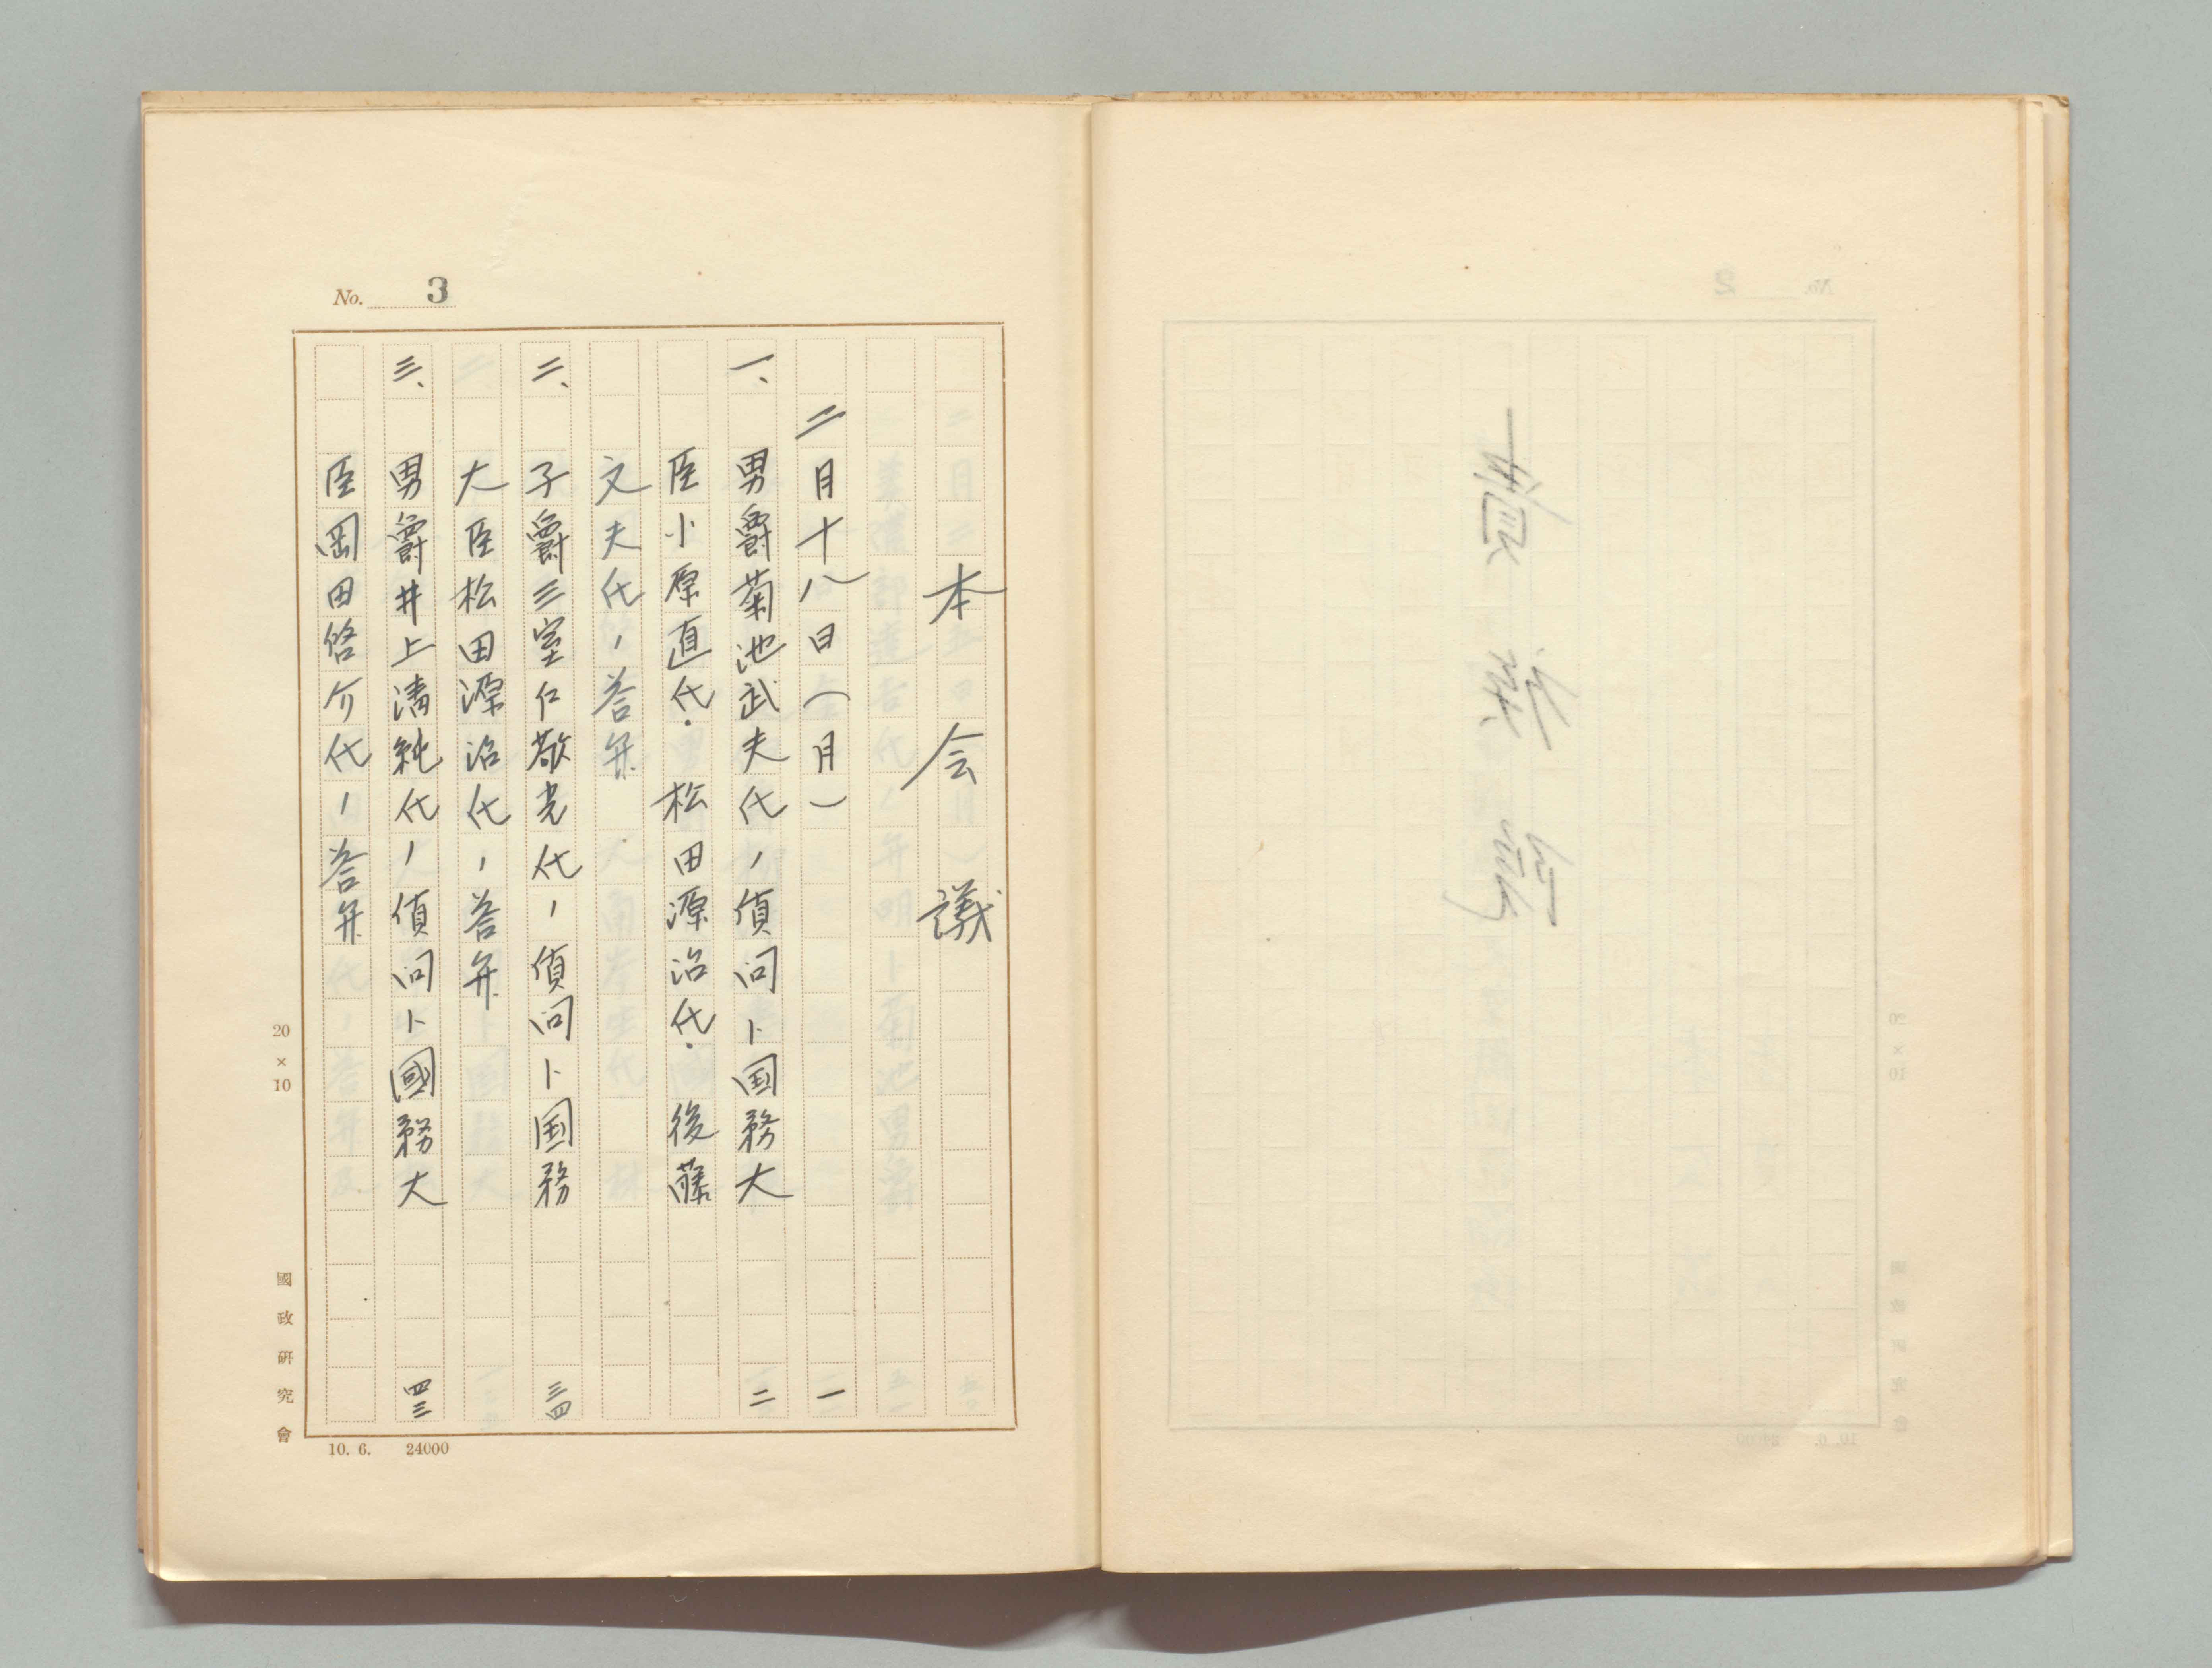 No. 3
本会議
二月十八日(月) 一
一、男爵菊池武夫氏ノ質問ト国務大 二
臣小原直氏・松田源治氏・後藤
文夫氏ノ答弁
二、子爵三室戸敬光氏ノ質問ト国務 三四
大臣松田源治氏ノ答弁
三、男爵井上清純氏ノ質問ト國務大 四三
臣岡田啓介氏ノ答弁
20×10
國政研究會
10. 6. 24000